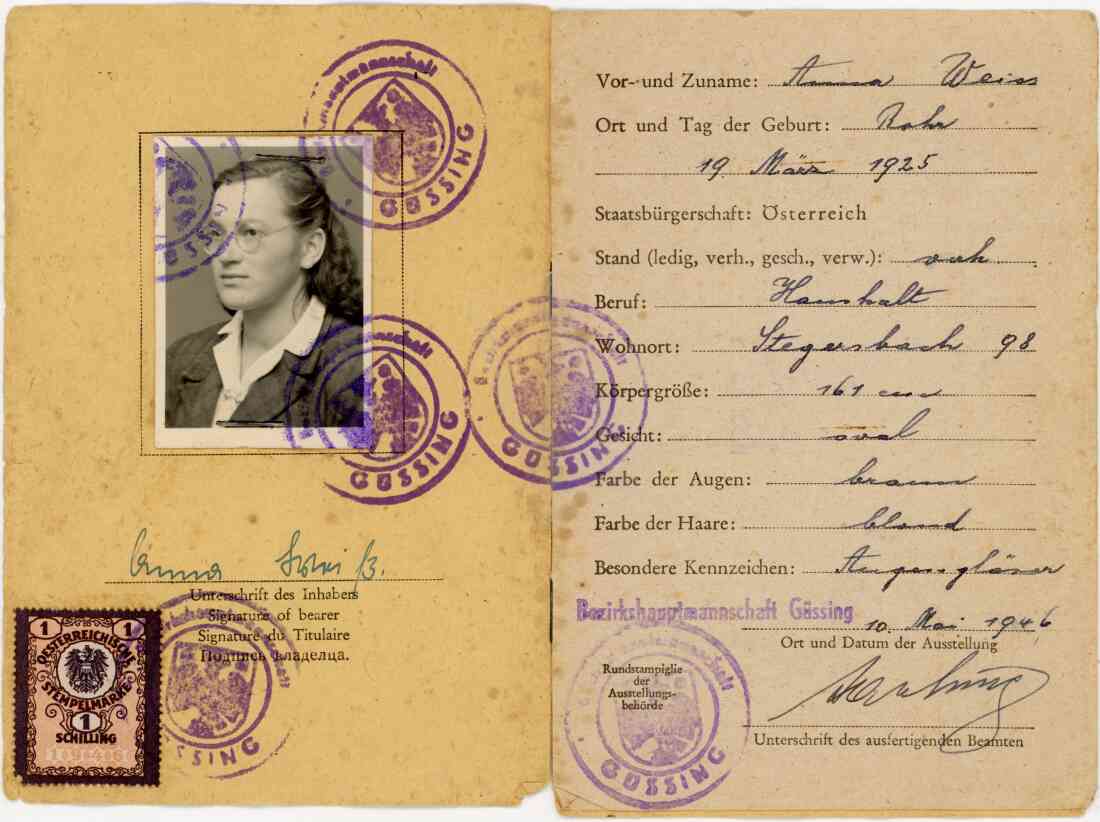 Bezirkshauptmannschaft
GÜSSING
GÜSSING
Bezirkshauptmannschaft
GÜSSING
Bezirkshauptmannschaft
GÜSSING
Anna Weiß.
Unterschrift des Inhabers
Signature of bearer
Signature du Titulaire
Подпись владельца.
1 1
OESTERREICHISCHE
STEMPELMARKE
1
SCHILLING
GÜSSING
Vor- und Zuname: Anna Weiss
Ort und Tag der Geburt: Rohr
19. März 1925
Staatsbürgerschaft: Österreich
Stand (ledig, verh., gesch., verw.): verh.
Beruf: Haushalt
Wohnort: Stegersbach 98
Körpergröße: 161 cm
Gesicht: oval
Farbe der Augen: braun
Farbe der Haare: blond
Besondere Kennzeichen: Augengläser
Bezirkshauptmannschaft Güssing 10. Mai 1946
Ort und Datum der Ausstellung
Rundstampiglie
der
Ausstellungs-
behörde
Unterschrift des ausfertigenden Beamten
Bezirkshauptmannschaft
GÜSSING